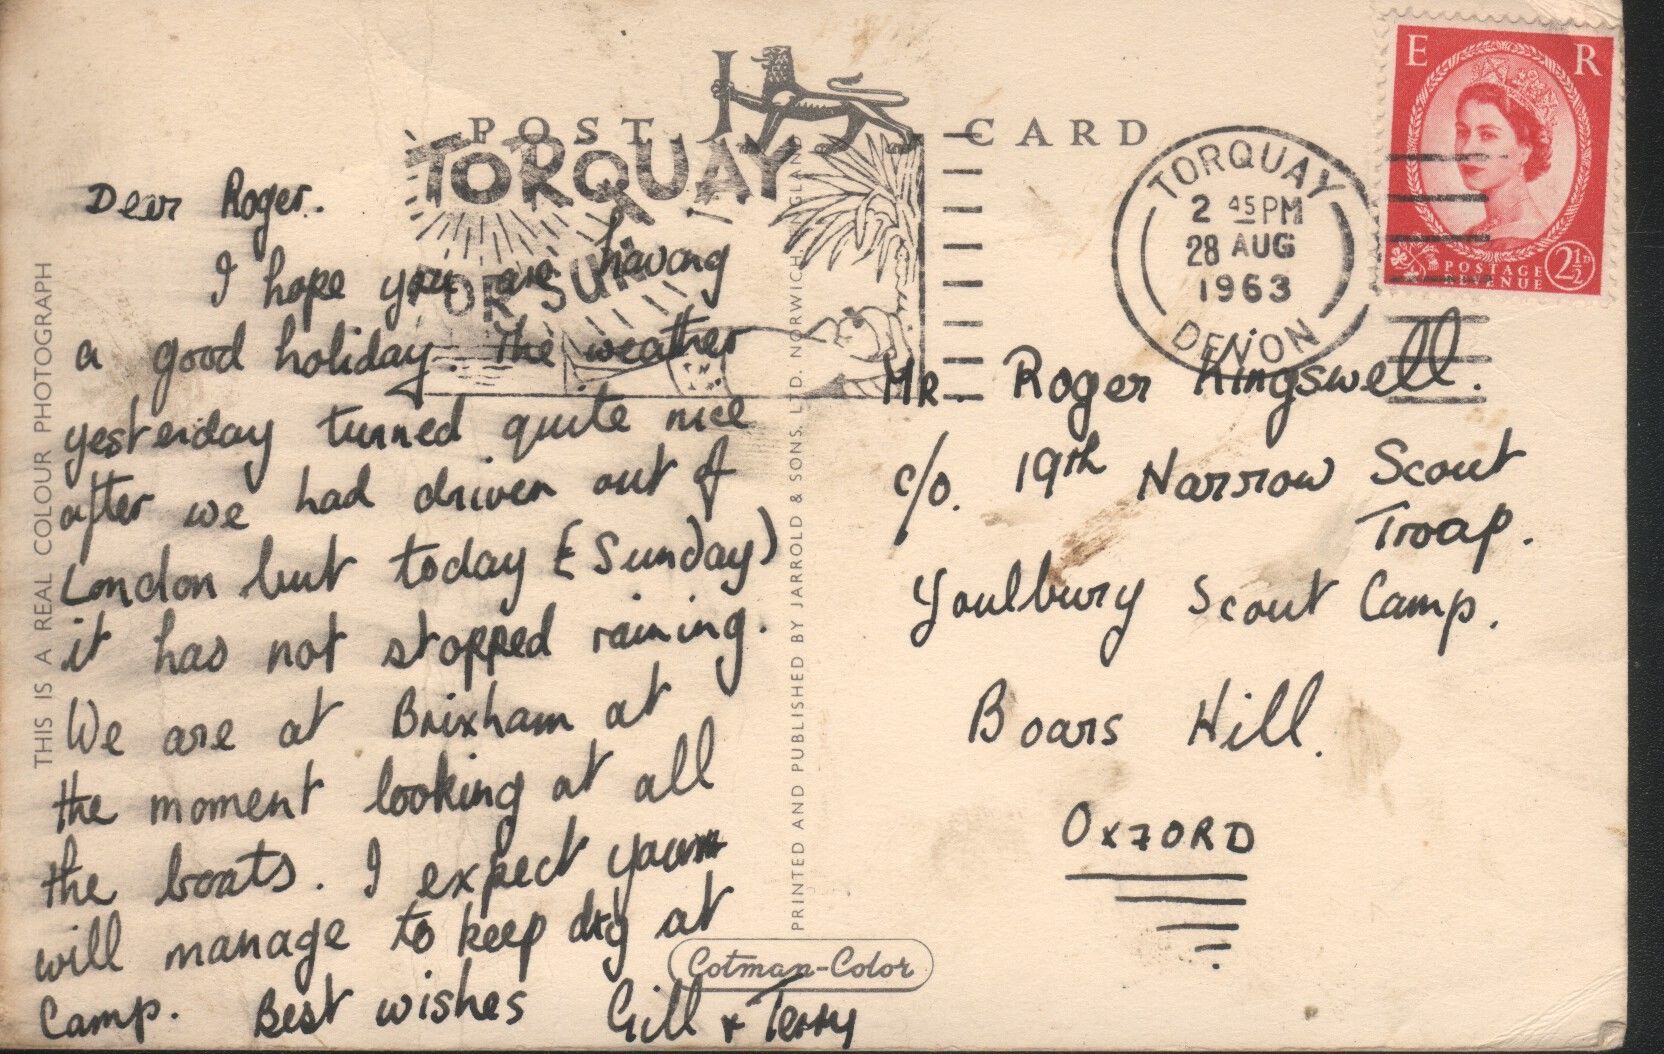 POST CARD
TORQUAY
FOR SUN
TORQUAY
2 45 PM
28 AUG
1963
DEVON
E R
POSTAGE
REVENUE
2½D
Dear Roger.
I hope you are having
a good holiday. The weather
yesterday turned quite nice
after we had driven out of
London but today (Sunday)
it has not stopped raining.
We are at Brixham at
the moment looking at all
the boats. I expect you
will manage to keep dry at
Camp. Best wishes Gill + Terry
MR. Roger Kingswell.
c/o. 19th Harrow Scout
Troop.
Youlbury Scout Camp.
Boars Hill.
OXFORD
THIS IS A REAL COLOUR PHOTOGRAPH
PRINTED AND PUBLISHED BY JARROLD & SONS, LTD. NORWICH, ENGLAND
Cotman-Color